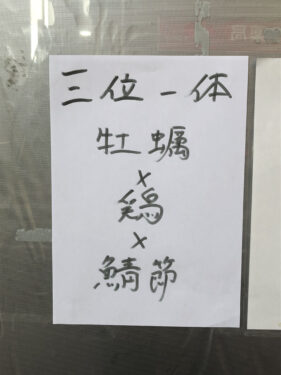 三位一体
牡蠣
×
鶏
×
鯖節